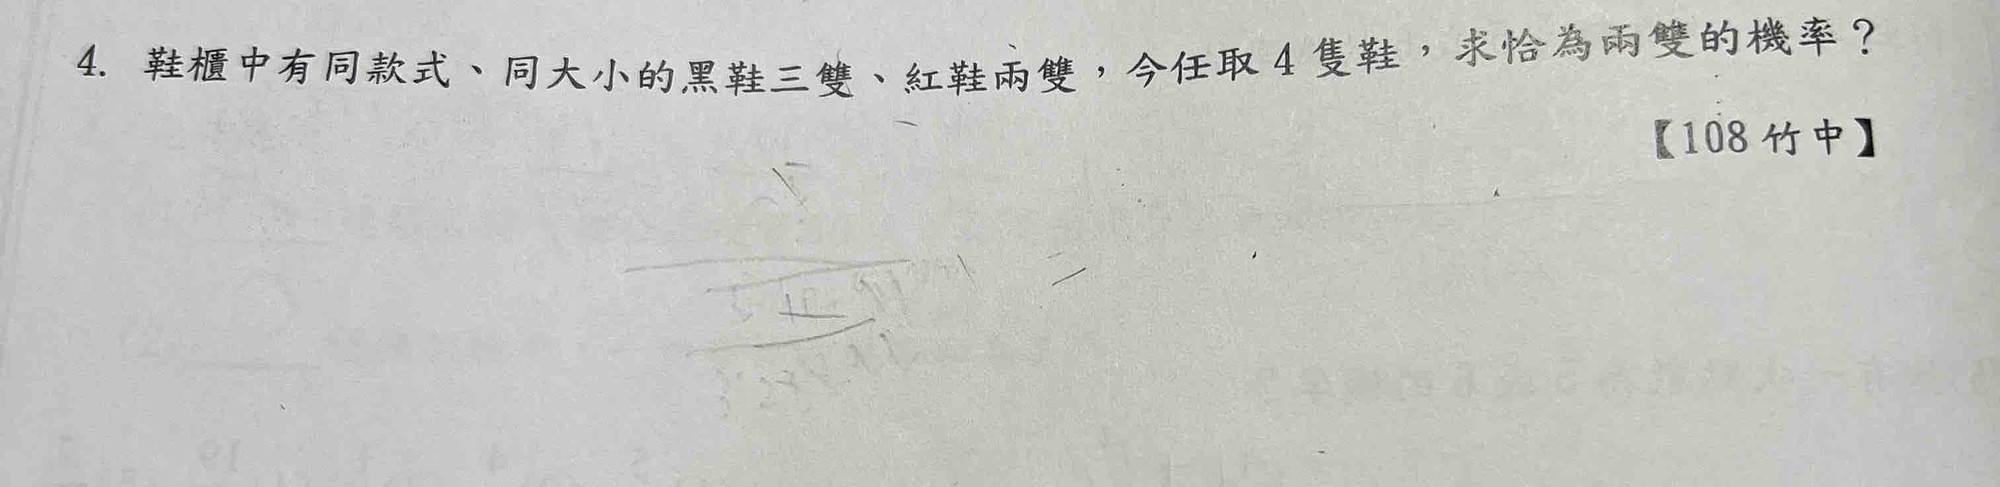 4. 鞋櫃中有同款式、同大小的黑鞋三雙、紅鞋兩雙，今任取 4 隻鞋，求恰為兩雙的機率？
【108 竹中】